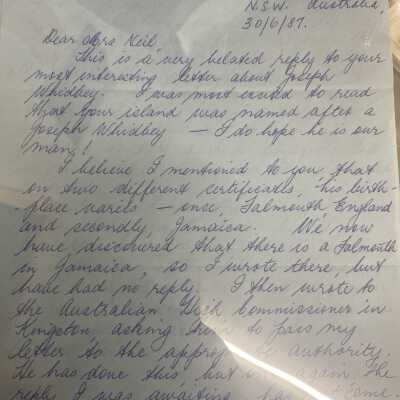 N.S.W. Australia,
30/6/87.
Dear Mrs Neil,
This is a very belated reply to your
most interesting letter about Joseph
Whidbey. I was most excited to read
that your island was named after a
Joseph Whidbey — I do hope he is our
man!
I believe I mentioned to you, that
on two different certificates, his birth-
-place varies — once, Falmouth, England
and secondly, Jamaica. We now
have discovered that there is a Falmouth
in Jamaica, so I wrote there, but
have had no reply. I then wrote to
the Australian High Commissioner in
Kingston asking him to pass my
letter to the authority.
He has done this, but again the
reply I was awaiting